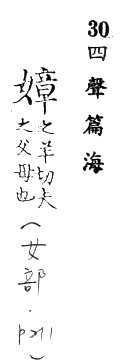 30 四聲篇海
嫜 之羊切夫
之父母也
（女部．p211）